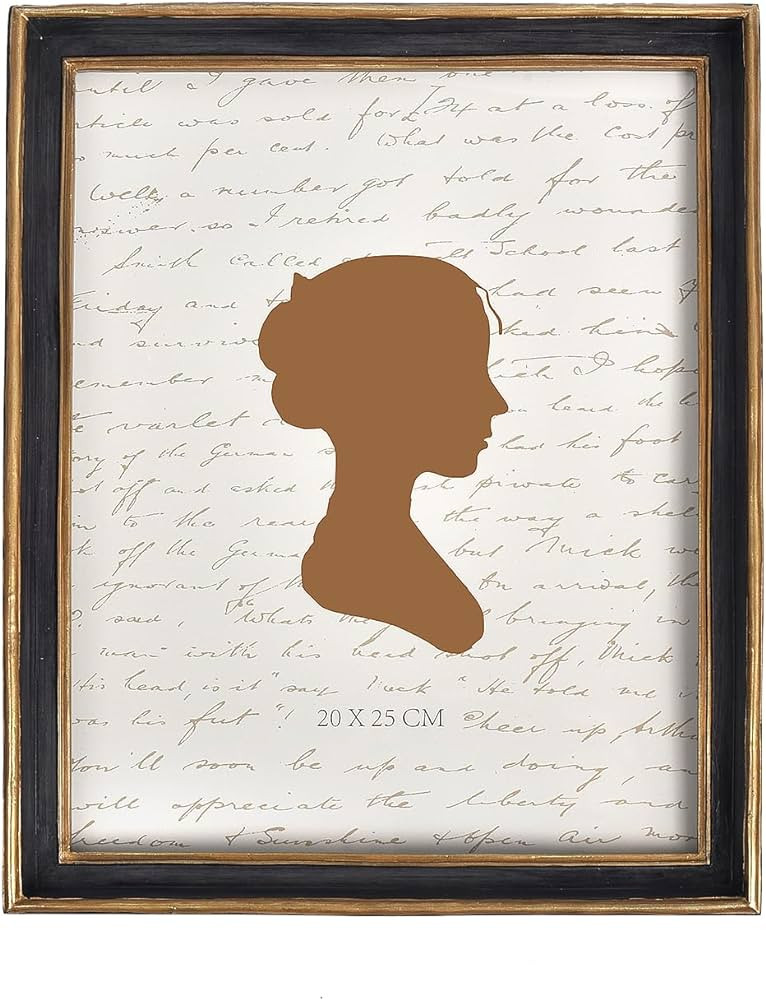 until I gave them one
article was sold for £24 at a loss. of
so much per cent. What was the Cost pr
Well, a number got told for the
answer. so I retired badly wounded
Smith called School last
Friday and had seen
and ked him
remember I hope
varlet heard the
ory of the German had his foot
off and asked private to car
to the rear the way a shel
off the Germa but Mick
ignorant of On arrival, the
said, "Whats the bringing in
man with his head shot off, Mick
His head, is it" say Mick "He told me
was his feet"! Cheer up, Arthu
20 X 25 CM
You'll soon be up and doing, an
will appreciate the liberty and
freedom & Sunshine & open air mor